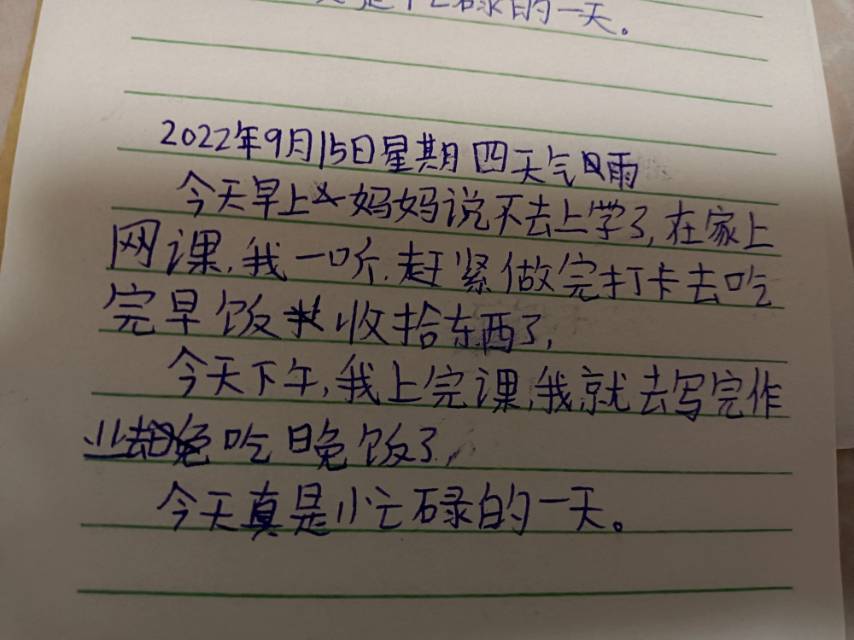 是忙碌的一天。
2022年9月15日星期四天气雨
今天早上妈妈说不去上学了,在家上
网课,我一听,赶紧做完打卡去吃
完早饭收拾东西了,
今天下午,我上完课,我就去写完作
业去吃晚饭了,
今天真是忙碌的一天。